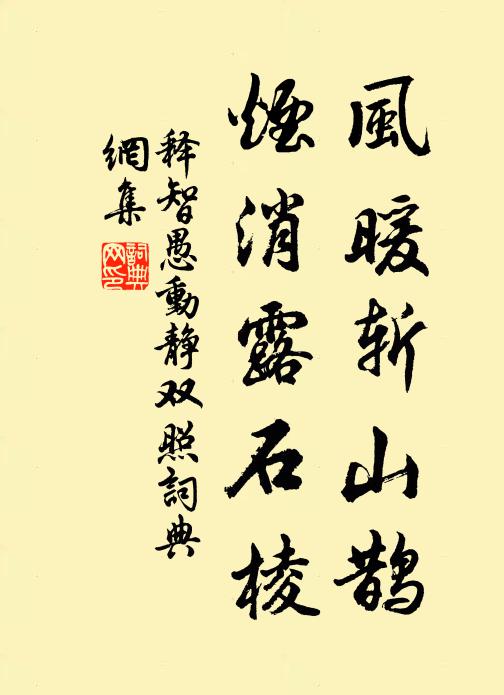 風暖斩山鹊
煙消露石棱
释智愚動静双照詞典
網集
詞典
网印